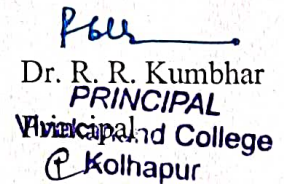 Dr. R. R. Kumbhar
PRINCIPAL
Principal
Vivekanand College
Kolhapur